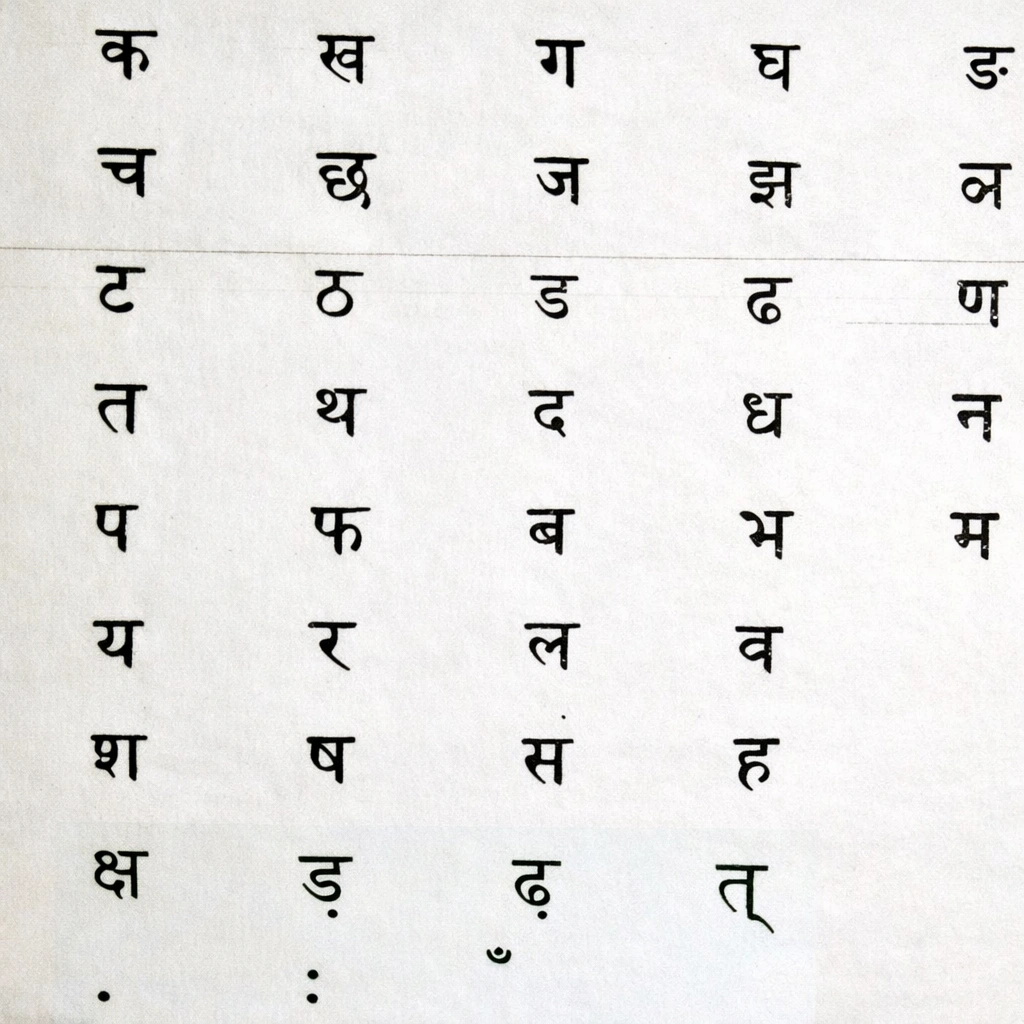 क ख ग घ ङ
च छ ज झ ञ
ट ठ ड ढ ण
त थ द ध न
प फ ब भ म
य र ल व
श ष स ह
क्ष ड़ ढ़ त्
ं ः ँ